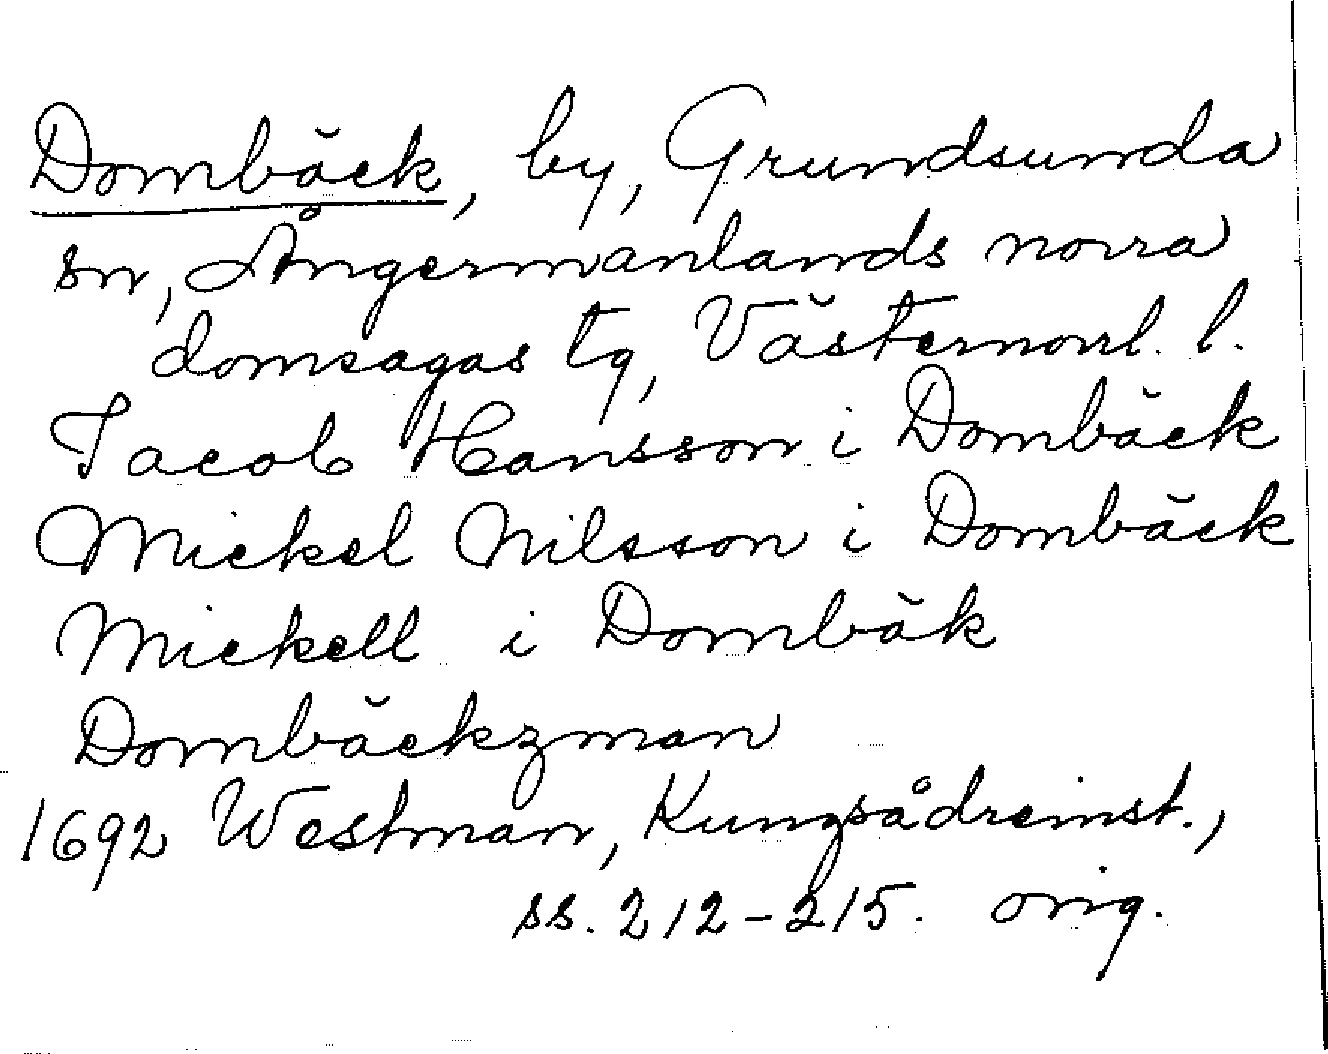 Dombäck, by, Grundsunda
sn, Ångermanlands norra
domsagas tg, Västernorrl. l.
Jacob Hansson i Dombäck
Mickel Nilsson i Dombäck
Mickell i Dombäk
Dombäckzman
1692 Westman, Kungsådreinst.,
ss. 212-215. orig.